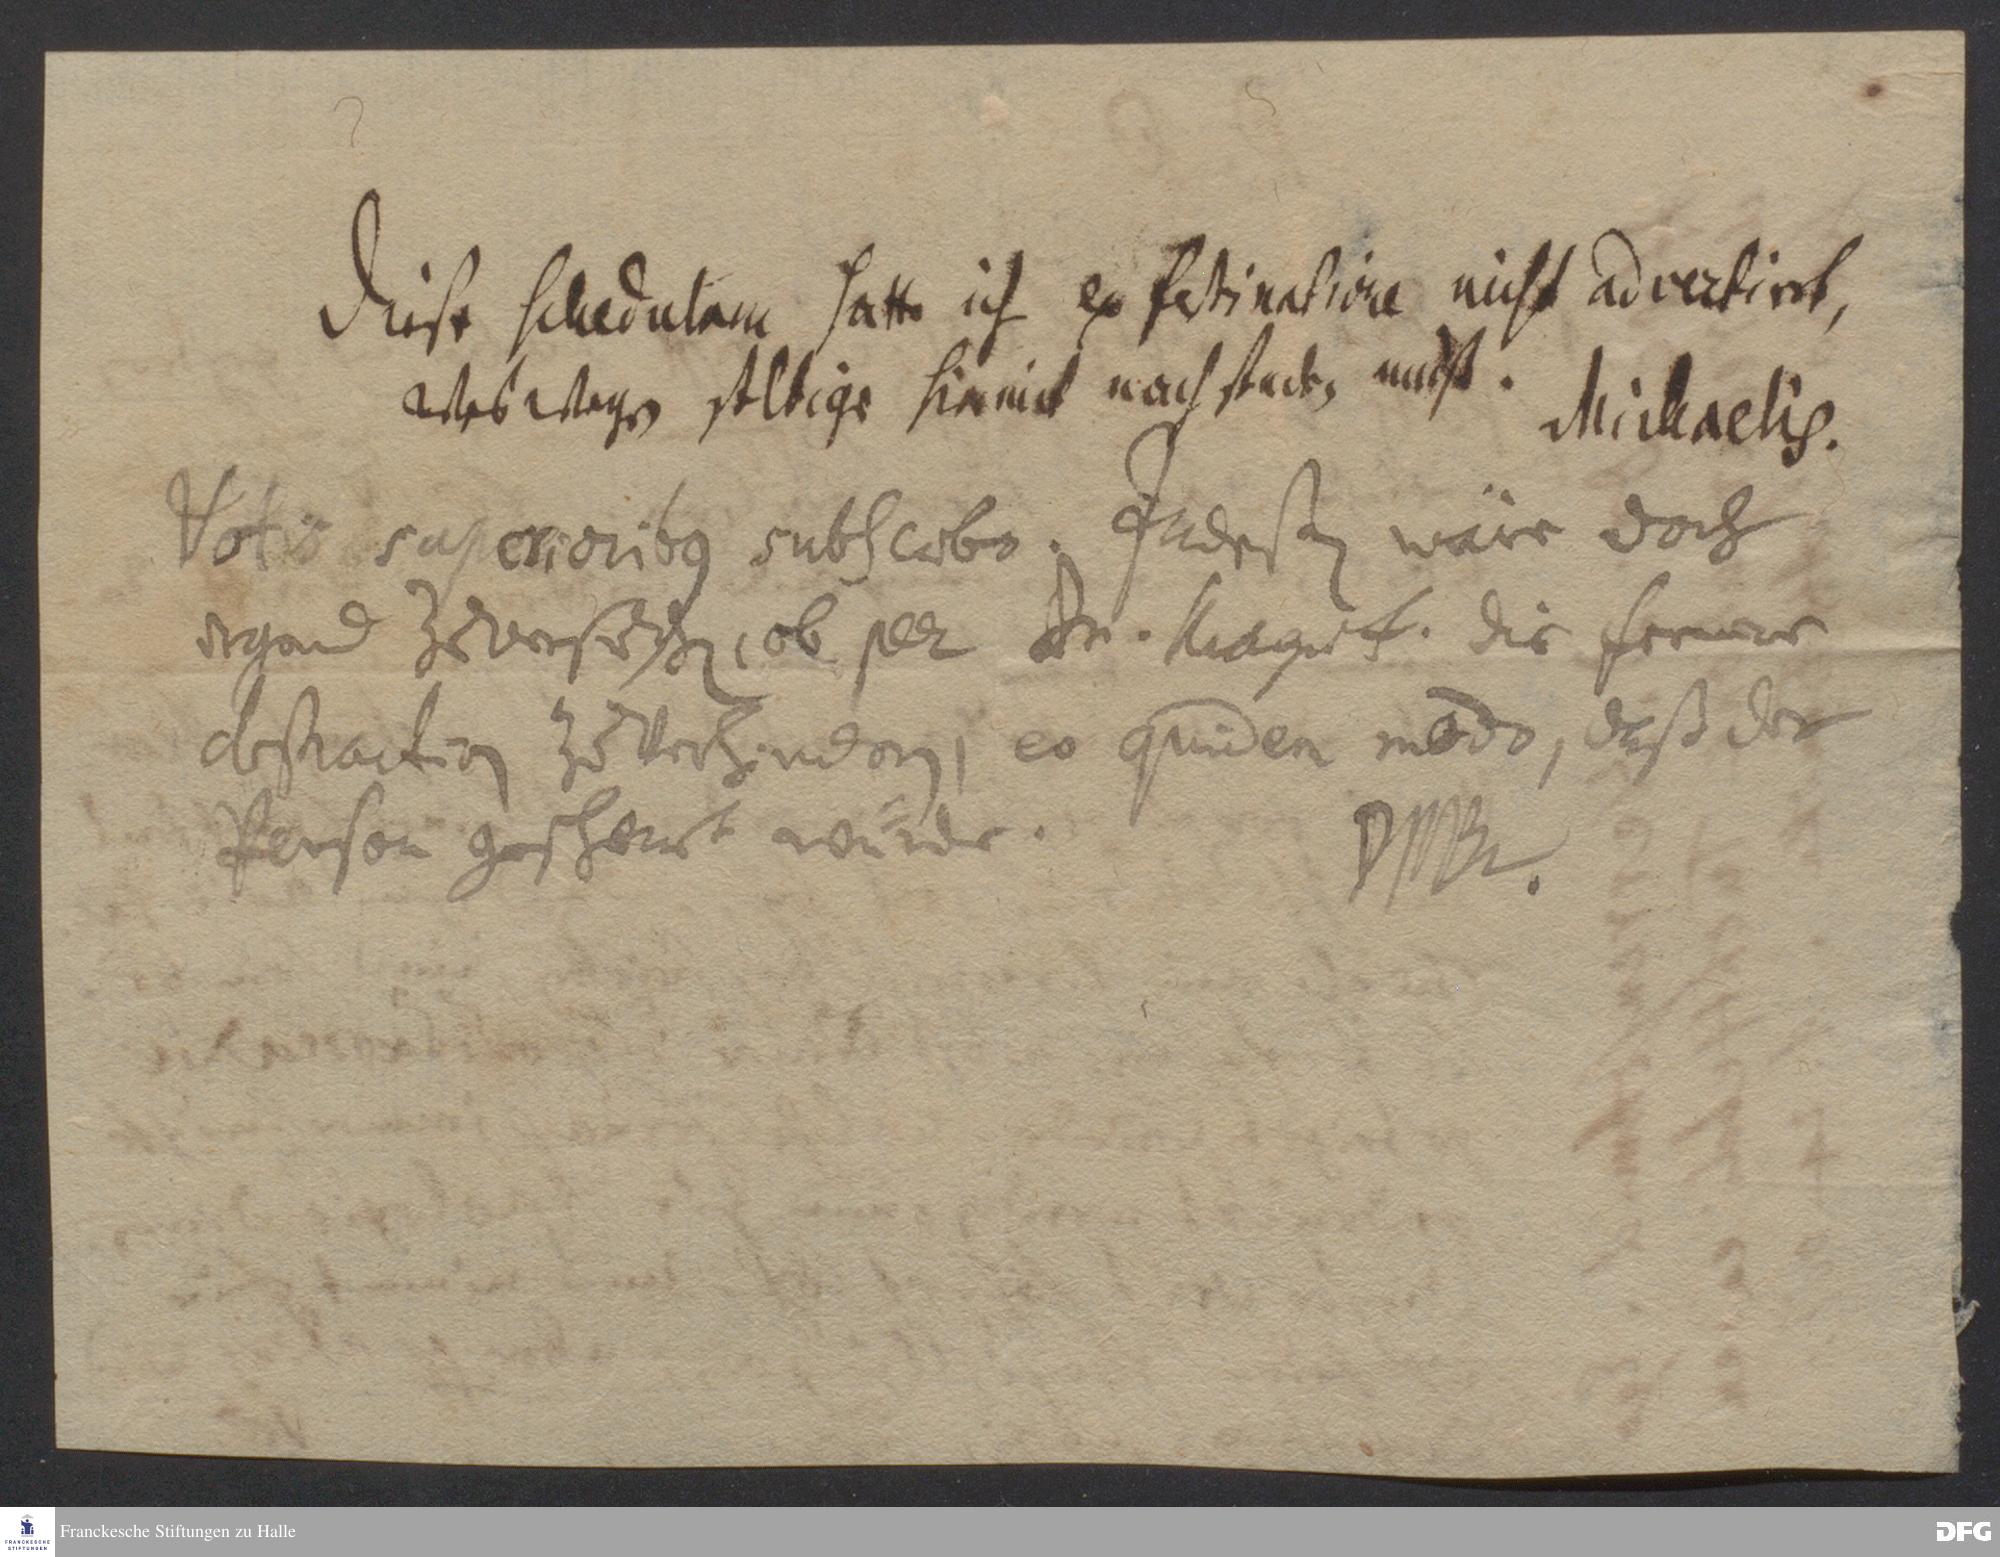 Diese schedulam hatte ich ex festinatione nicht advertirt,
weswegen selbige hiemit nachstecken muß. Michaelis.
Votis superioribus subscribo. Indeßen wäre doch
irgend zu versuchen, ob per Dn. Magist. die fernere
distraction zu verhindern, eo quidem modo, daß der
Person geschont würde.
Franckesche Stiftungen zu Halle
FRANCKESCHE
STIFTUNGEN
DFG